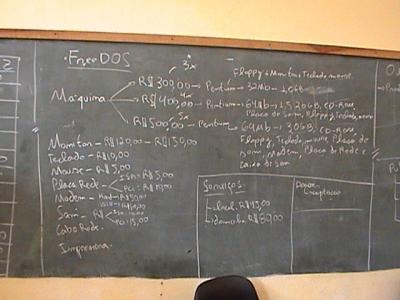 .FreeDOS
3x
Máquina
R$300,00 → Pentium → 32Mb - 1,0GB
Floppy + Monitor, Teclado, mouse
R$400,00 → Pentium → 64Mb - 1,520GB, CD-Rom,
4x
Placa de Som, Floppy, Teclado, mouse
R$500,00 → Pentium → 64Mb - 3.0GB, CD-Rom,
5x
Floppy, Teclado, mouse Placa de
som, Modem, Placa de Rede e
Caixa de Som
Monitor - R$120,00 - R$150,00
Teclado - R$10,00
Mouse - R$5,00
Placa Rede
ISA - R$5,00
PCI - R$10,00
Modem
Som - R$
PCI - 15,00
Cabo Rede.
Impressora.
Serviços
Local - R$45,00
domicílio - R$80,00